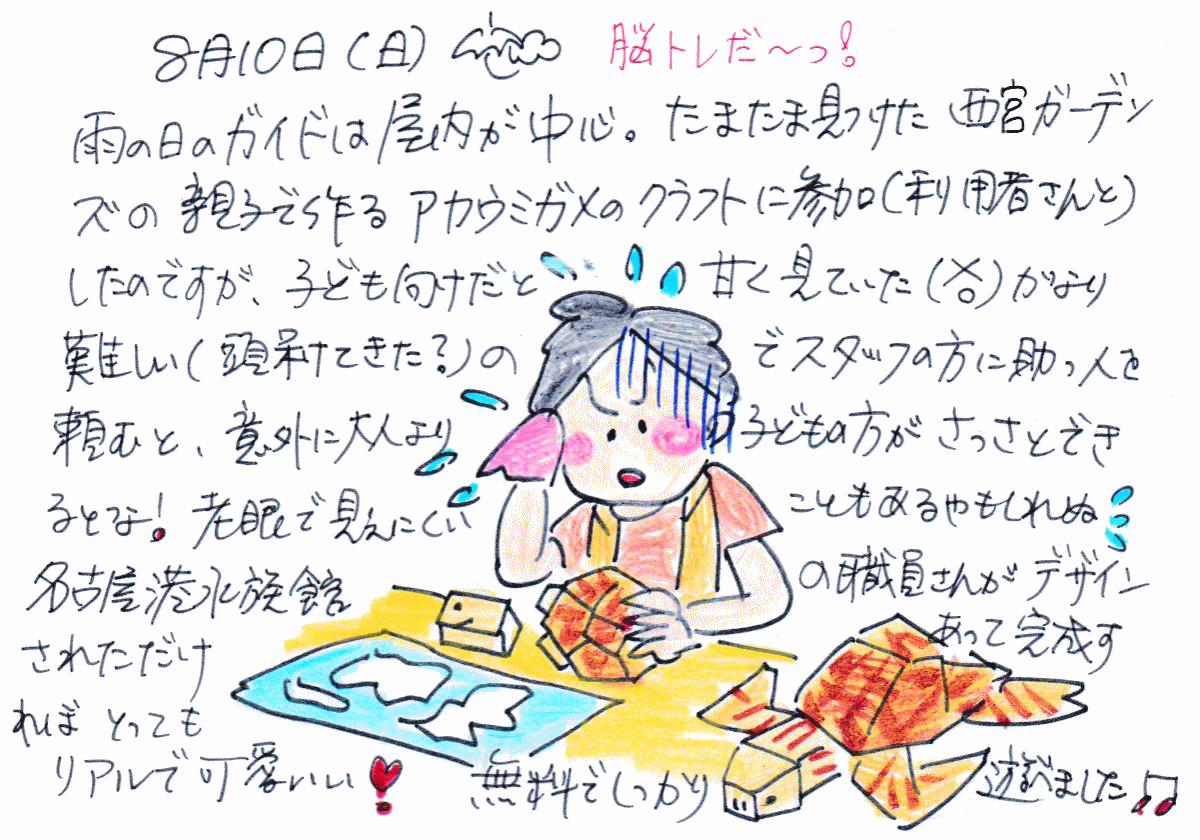 8月10日(日) 脳トレだ〜っ!
雨の日のガイドは屋内が中心。たまたま見つけた 西宮ガーデン
ズの 親子で作る アカウミガメのクラフトに参加(利用者さんと)
したのですが、子ども向けだと 甘く見ていた かなり
難しい(頭呆けてきた?)の でスタッフの方に助っ人を
頼むと、意外に大人より 子どもの方が さっさとでき
るとな! 老眼で見えにくい こともあるやもしれぬ
名古屋港水族館 の職員さんが デザイン
されただけ あって完成す
ればとっても
リアルで可愛いい! 無料でしっかり 遊べました♫